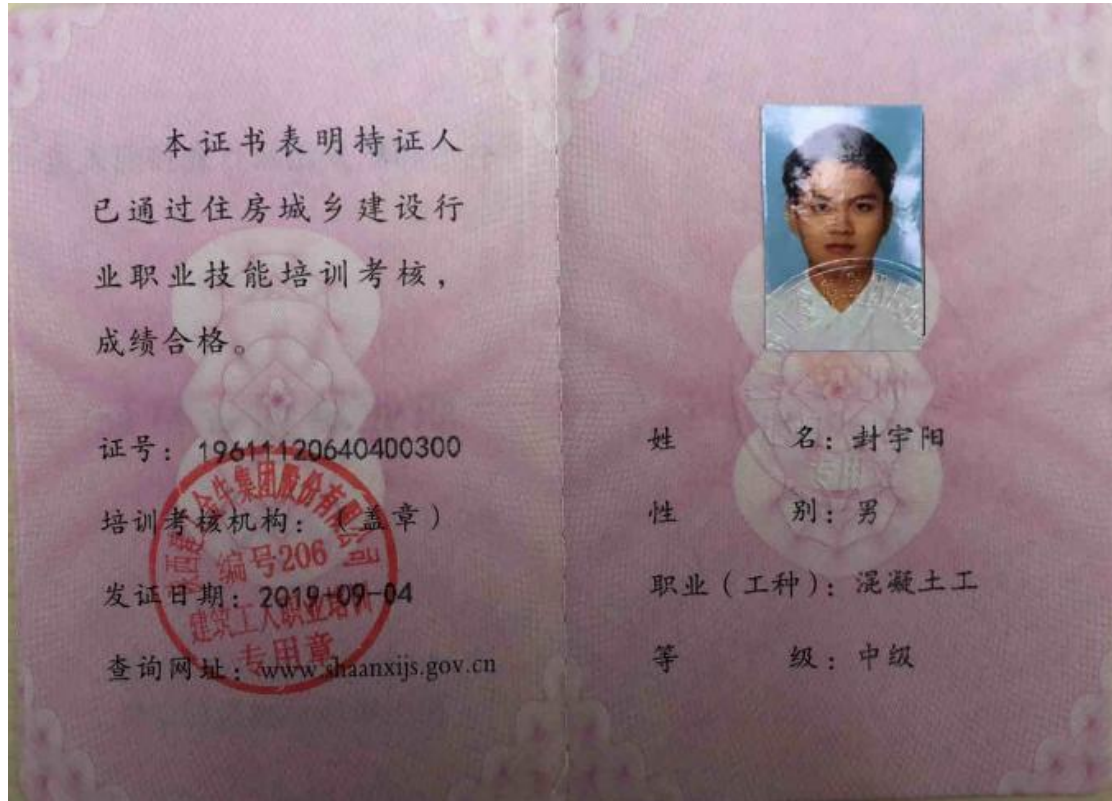 本证书表明持证人
已通过住房城乡建设行
业职业技能培训考核，
成绩合格。
证号：19611120640400300
培训考核机构：（盖章）
发证日期：2019-09-04
查询网址：www.shaanxijs.gov.cn
金牛集团股份有限公司
编号206
建筑工人职业培训
专用章
姓名：封宇阳
性别：男
职业（工种）：混凝土工
等级：中级